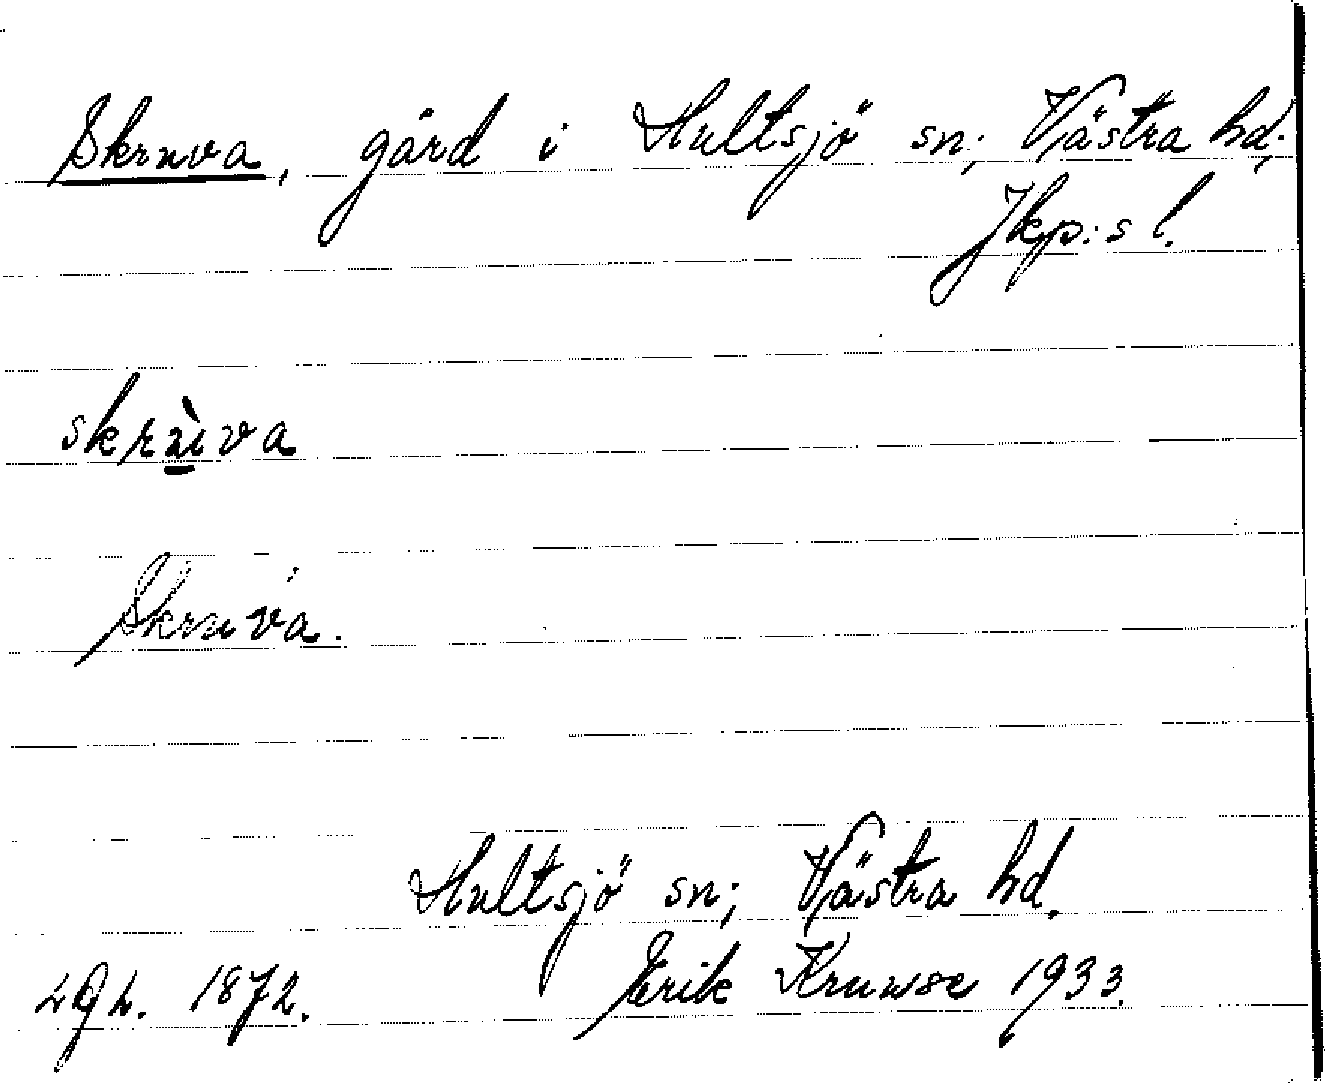 Skruva, gård i Hultsjö sn; Västra hd;
Jkp:s l.
skrùva
Skruva.
Hultsjö sn; Västra hd.
1872. Erik Kruuse 1933.